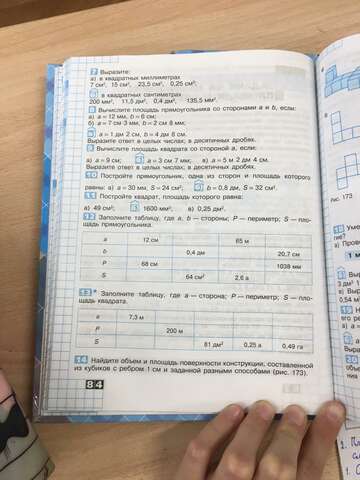 7 Выразите:
а) в квадратных миллиметрах
7 см², 15 см², 23,5 см², 0,25 см²;
б) в квадратных сантиметрах
200 мм², 11,5 дм², 0,4 дм², 135,5 мм².
8 Вычислите площадь прямоугольника со сторонами a и b, если:
а) a = 12 мм, b = 6 см;
б) a = 7 см 3 мм, b = 2 см 8 мм;
в) a = 1 дм 2 см, b = 4 дм 8 см.
Выразите ответ в целых числах; в десятичных дробях.
9 Вычислите площадь квадрата со стороной a, если:
а) a = 9 см; б) a = 3 см 7 мм; в) a = 5 м 2 дм 4 см.
Выразите ответ в целых числах; в десятичных дробях.
10 Постройте прямоугольник, одна из сторон и площадь которого
равны: а) a = 30 мм, S = 24 см²; б) b = 0,8 дм, S = 32 см².
11 Постройте квадрат, площадь которого равна:
а) 49 см²; б) 1600 мм²; в) 0,25 дм².
12 Заполните таблицу, где a, b — стороны; P — периметр; S — площадь прямоугольника.
a 12 см 65 м
b 0,4 дм 20,7 см
P 68 см 1038 мм
S 64 см² 2,6 а
13* Заполните таблицу, где a — сторона; P — периметр; S — площадь квадрата.
a 7,3 м
P 200 м
S 81 дм² 0,25 а 0,49 га
14 Найдите объем и площадь поверхности конструкции, составленной
из кубиков с ребром 1 см и заданной разными способами (рис. 173).
84
рис. 173